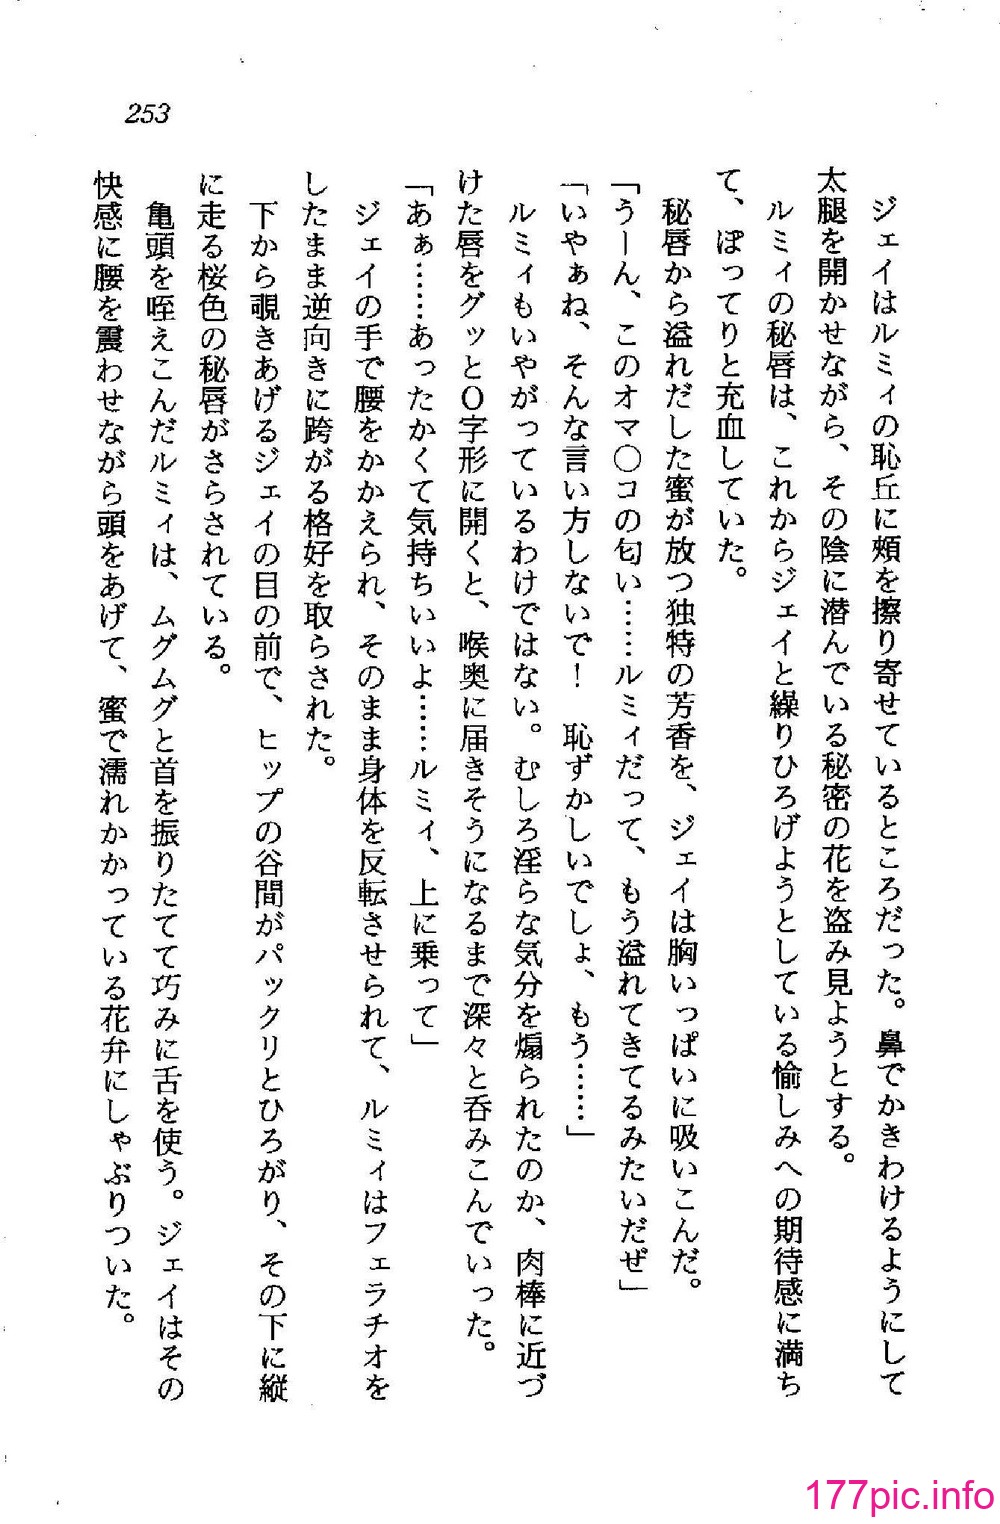 253
ジェイはルミィの恥丘に頰を擦り寄せているところだった。鼻でかきわけるようにして
太腿を開かせながら、その陰に潜んでいる秘密の花を盗み見ようとする。
ルミィの秘唇は、これからジェイと繰りひろげようとしている愉しみへの期待感に満ち
て、ぽってりと充血していた。
秘唇から溢れだした蜜が放つ独特の芳香を、ジェイは胸いっぱいに吸いこんだ。
「うーん、このオマ〇コの匂い……ルミィだって、もう溢れてきてるみたいだぜ」
「いやぁね、そんな言い方しないで！　恥ずかしいでしょ、もう……」
ルミィもいやがっているわけではない。むしろ淫らな気分を煽られたのか、肉棒に近づ
けた唇をグッとO字形に開くと、喉奥に届きそうになるまで深々と呑みこんでいった。
「あぁ……あったかくて気持ちいいよ……ルミィ、上に乗って」
ジェイの手で腰をかかえられ、そのまま身体を反転させられて、ルミィはフェラチオを
したまま逆向きに跨がる格好を取らされた。
下から覗きあげるジェイの目の前で、ヒップの谷間がパックリとひろがり、その下に縦
に走る桜色の秘唇がさらされている。
亀頭を咥えこんだルミィは、ムグムグと首を振りたてて巧みに舌を使う。ジェイはその
快感に腰を震わせながら頭をあげて、蜜で濡れかかっている花弁にしゃぶりついた。
177pic.info